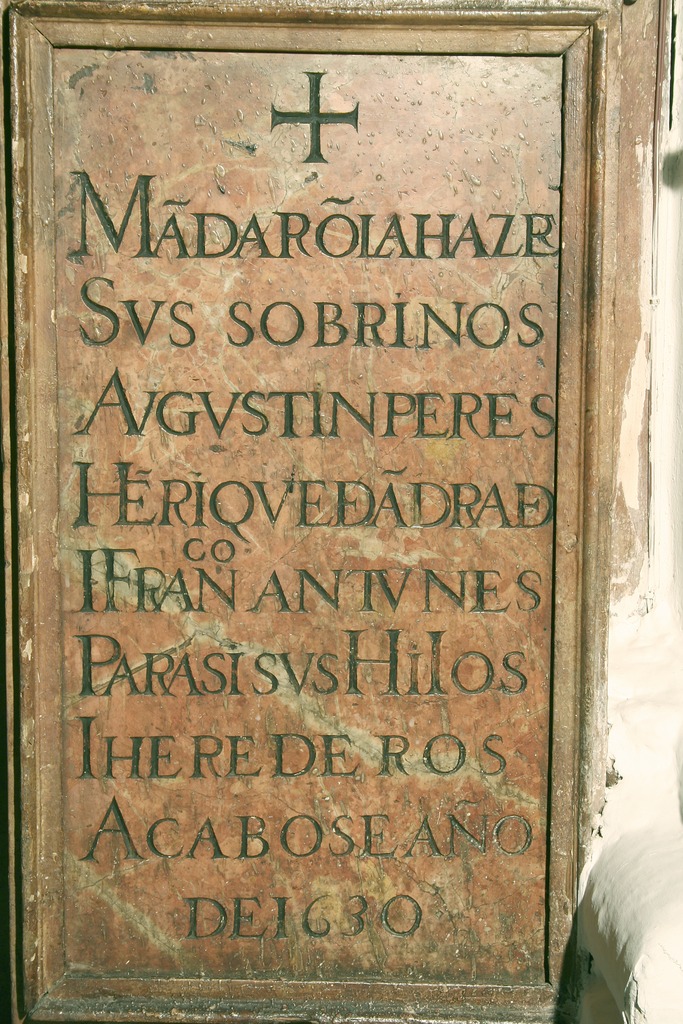 MÃDARÕLAHAZER
SVS SOBRINOS
AVGVSTINPERES
HẼRIQVEDÃDRADE
IFRANCO ANTVNES
PARASISVSHIIOS
IHEREDEROS
ACABOSEAÑO
DE1630